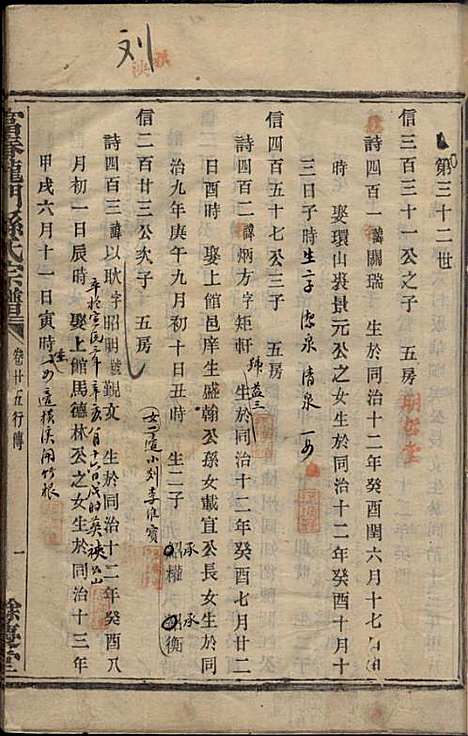 刘
第三十二世
信三百三十一公之子 五房
詩四百一諱關瑞 生於同治十二年癸酉閏六月十七日酉
時 娶環山裘景元公之女生於同治十二年癸酉十月十
三日子時 生二子 清泉
信四百五十七公三子 五房
詩四百二諱炳方字矩軒 號益三 生於同治十二年癸酉七月廿二
日酉時 娶上館邑庠生盛翰公孫女載宜公長女生於同
治九年庚午九月初十日丑時 生二子 承權 承衡
女一適小刘李
信二百廿三公次子 五房
詩四百三諱以欣字昭明號觐文 生於同治十二年癸酉八
月初一日辰時 娶上館馬德林公之女生於同治十三年
甲戌六月十一日寅時 生一女適橫溪
富春龍門孫氏宗譜
卷廿五行傳
一
餘慶堂